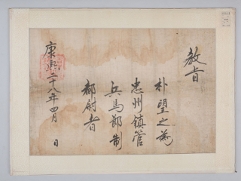 教旨
朴望之為
忠州鎮管
兵馬節制
都尉者
康熙二十八年四月 日